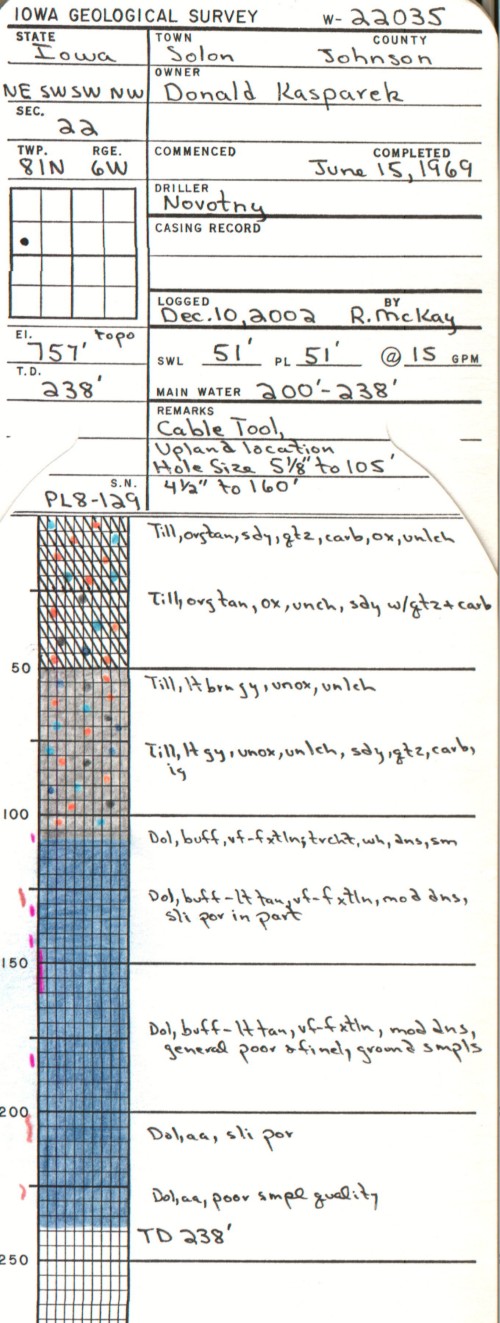 IOWA GEOLOGICAL SURVEY W- 22035
STATE TOWN COUNTY
Iowa Solon Johnson
OWNER
NE SWSW NW Donald Kasparek
SEC.
22
TWP. RGE. COMMENCED COMPLETED
81N 6W June 15, 1969
DRILLER
Novotny
CASING RECORD
LOGGED BY
Dec. 10, 2002 R. McKay
El. topo
757' SWL 51' PL 51' @ 15 GPM
T.D.
238' MAIN WATER 200'-238'
REMARKS
Cable Tool,
Upland location
Hole Size 5 1/8" to 105'
S.N. 4 1/2" to 160'
PL8-129
Till, orgtan, sdy, qtz, carb, ox, unlch
Till, orgtan, ox, unch, sdy w/qtz + carb
50
Till, lt brn gy, unox, unlch
Till, lt gy, unox, unlch, sdy, qtz, carb,
ig
100
Dol, buff, vf-fxtln, trcht, wh, dns, sm
Dol, buff-lt tan, vf-fxtln, mod dns,
sli por in part
150
Dol, buff-lt tan, vf-fxtln, mod dns,
general poor & finely ground smpls
200
Dol, aa, sli por
Dol, aa, poor smpl quality
TD 238'
250